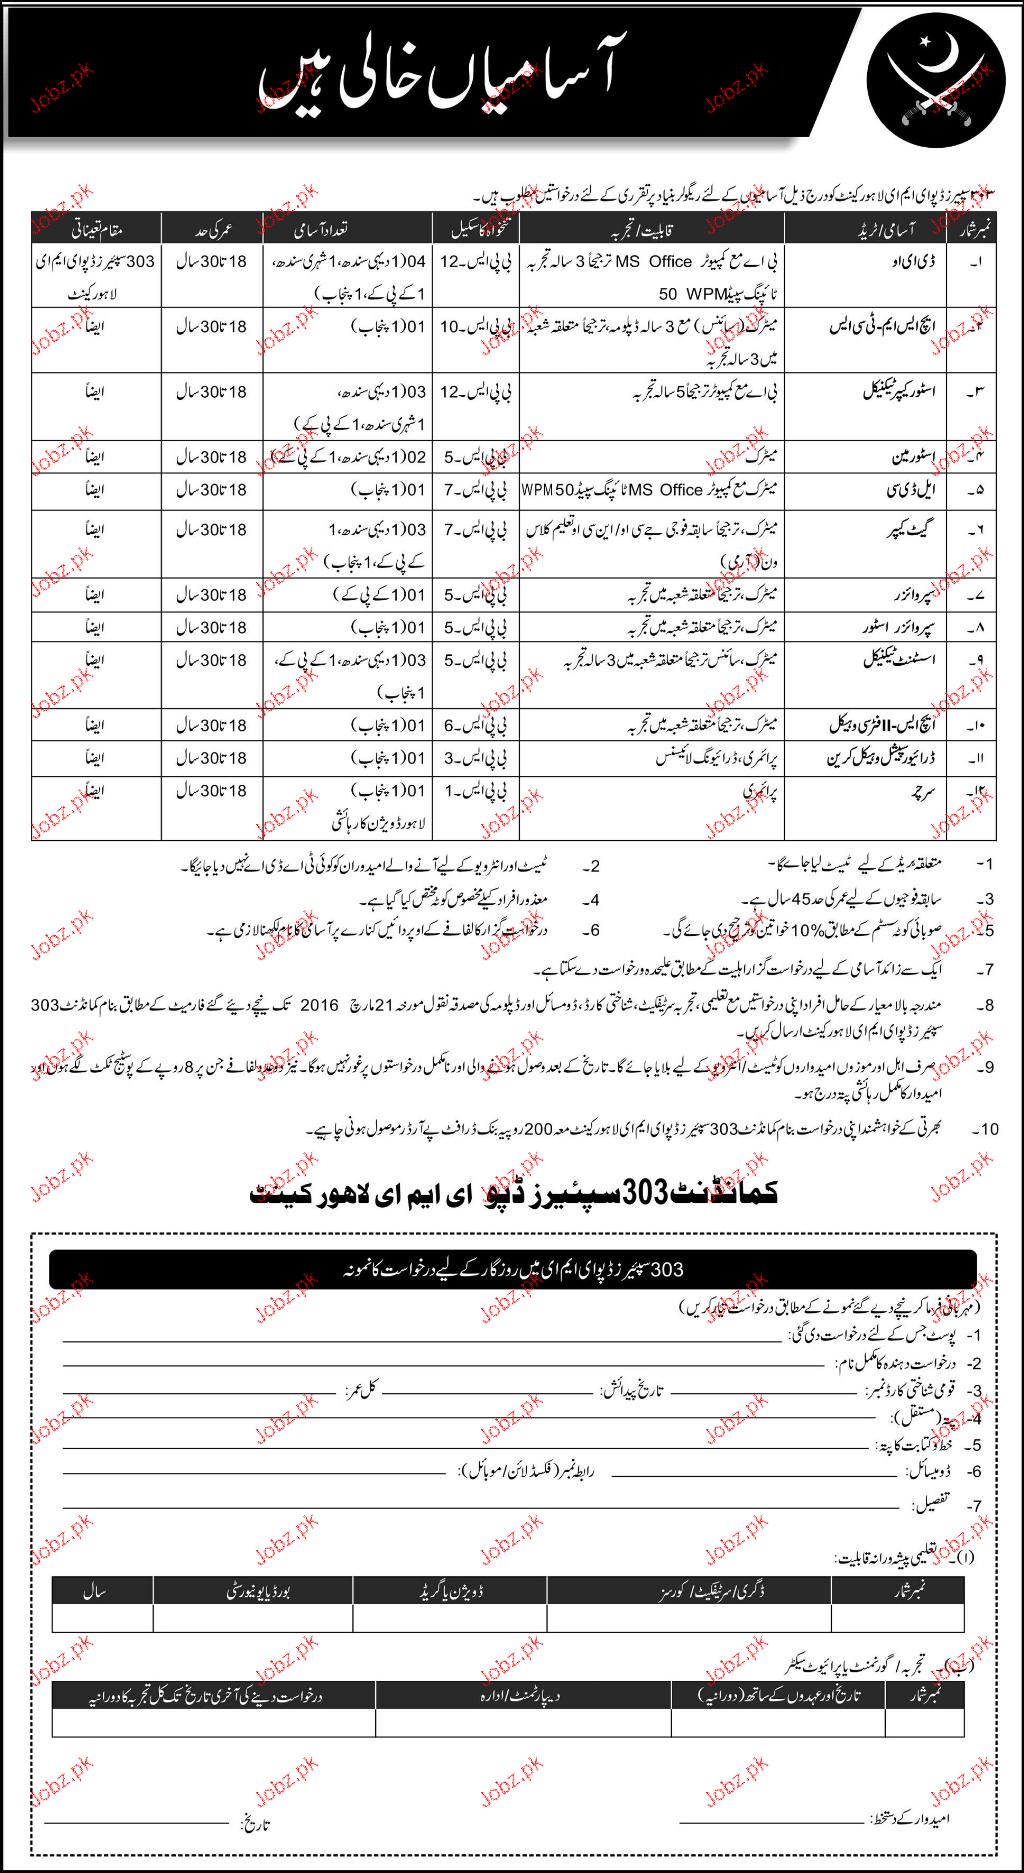 آسامیاں خالی ہیں
۳۰۳ سپیرز ڈپو ای ایم ای لاہور کینٹ کو درج ذیل آسامیوں کے لئے ریگولر بنیاد پر تقرری کے لئے درخواستیں مطلوب ہیں۔
نمبر شمار آسامی/ٹریڈ قابلیت/تجربہ تنخواہ کا سکیل تعداد آسامی عمر کی حد مقام تعیناتی
۱۔ ڈی ای او بی اے مع کمپیوٹر MS Office ترجیحاً 3 سالہ تجربہ بی پی ایس۔12 04(1 دیہی سندھ، 1 شہری سندھ، 18 تا 30 سال 303 سپئیرز ڈپو ای ایم ای
ٹائپنگ سپیڈ 50 WPM 1 کے پی کے، 1 پنجاب) لاہور کینٹ
۲۔ ایچ ایس ایم-ٹی سی ایس میٹرک (سائنس) مع 3 سالہ ڈپلومہ، ترجیحاً متعلقہ شعبہ بی پی ایس۔10 01(1 پنجاب) 18 تا 30 سال ایضاً
میں 3 سالہ تجربہ
۳۔ اسٹور کیپر ٹیکنیکل بی اے مع کمپیوٹر ترجیحاً 5 سالہ تجربہ بی پی ایس۔12 03(1 دیہی سندھ، 18 تا 30 سال ایضاً
1 شہری سندھ، 1 کے پی کے)
۴۔ اسٹور مین میٹرک بی پی ایس۔5 02(1 دیہی سندھ، 1 کے پی کے) 18 تا 30 سال ایضاً
۵۔ ایل ڈی سی میٹرک مع کمپیوٹر MS Office ٹائپنگ سپیڈ 50 WPM بی پی ایس۔7 01(1 پنجاب) 18 تا 30 سال ایضاً
۶۔ گیٹ کیپر میٹرک، ترجیحاً سابقہ فوجی جے سی او/این سی او تعلیم کلاس بی پی ایس۔7 03(1 دیہی سندھ، 1 18 تا 30 سال ایضاً
ون (آرمی) کے پی کے، 1 پنجاب)
۷۔ سپروائزر میٹرک، ترجیحاً متعلقہ شعبہ میں تجربہ بی پی ایس۔5 01(1 کے پی کے) 18 تا 30 سال ایضاً
۸۔ سپروائزر اسٹور میٹرک، ترجیحاً متعلقہ شعبہ میں تجربہ بی پی ایس۔5 01(1 پنجاب) 18 تا 30 سال ایضاً
۹۔ اسسٹنٹ ٹیکنیکل میٹرک، سائنس ترجیحاً متعلقہ شعبہ میں 3 سالہ تجربہ بی پی ایس۔5 03(1 دیہی سندھ، 1 کے پی کے، 18 تا 30 سال ایضاً
1 پنجاب)
۱۰۔ ایچ ایس-II فٹر سی وہیکل میٹرک، ترجیحاً متعلقہ شعبہ میں تجربہ بی پی ایس۔6 01(1 پنجاب) 18 تا 30 سال ایضاً
۱۱۔ ڈرائیور سپیشل وہیکل کرین پرائمری، ڈرائیونگ لائیسنس بی پی ایس۔3 01(1 پنجاب) 18 تا 30 سال ایضاً
۱۲۔ سرچر پرائمری بی پی ایس۔1 01(1 پنجاب) 18 تا 30 سال ایضاً
لاہور ڈویژن کا رہائشی
1۔ متعلقہ ٹریڈ کے لیے ٹیسٹ لیا جائے گا۔ 2۔ ٹیسٹ اور انٹرویو کے لیے آنے والے امیدوران کو کوئی ٹی اے ڈی اے نہیں دیا جائیگا۔
3۔ سابقہ فوجیوں کے لیے عمر کی حد 45 سال ہے۔ 4۔ معذور افراد کیلئے مخصوص کوٹہ مختص کیا گیا ہے۔
5۔ صوبائی کوٹہ سسٹم کے مطابق 10% خواتین کو ترجیح دی جائے گی۔ 6۔ درخواست گزار کا لفافے کے اوپر دائیں کنارے پر آسامی کا نام لکھنا لازمی ہے۔
7۔ ایک سے زائد آسامی کے لیے درخواست گزار اہلیت کے مطابق علیحدہ درخواست دے سکتا ہے۔
8۔ مندرجہ بالا معیار کے حامل افراد اپنی درخواستیں مع تعلیمی، تجربہ سرٹیفکیٹ، شناختی کارڈ، ڈومسائل اور ڈپلومہ کی مصدقہ نقول مورخہ 21 مارچ 2016 تک نیچے دیئے گئے فارمیٹ کے مطابق بنام کمانڈنٹ 303
سپئیرز ڈپو ای ایم ای لاہور کینٹ ارسال کریں۔
9۔ صرف اہل اور موزوں امیدواروں کو ٹیسٹ/انٹرویو کے لیے بلایا جائے گا۔ تاریخ کے بعد وصول ہونے والی اور نامکمل درخواستوں پر غور نہیں ہوگا۔ نیز دو عدد لفافے جن پر 8 روپے کے پوسٹیج ٹکٹ لگے ہوں اور
امیدوار کا مکمل رہائشی پتہ درج ہو۔
10۔ بھرتی کے خواہشمند اپنی درخواست بنام کمانڈنٹ 303 سپئیرز ڈپو ای ایم ای لاہور کینٹ معہ 200 روپیہ بنک ڈرافٹ پے آرڈر موصول ہونی چاہیے۔
کمانڈنٹ 303 سپئیرز ڈپو ای ایم ای لاهور کینٹ
303 سپئیرز ڈپو ای ایم ای میں روزگار کے لیے درخواست کا نمونہ
(مہربانی فرما کر نیچے دیے گئے نمونے کے مطابق درخواست تیار کریں)
1- پوسٹ جس کے لئے درخواست دی گئی:
2- درخواست دہندہ کا مکمل نام:
3- قومی شناختی کارڈ نمبر: تاریخ پیدائش: کل عمر:
4- پتہ (مستقل):
5۔ خط و کتابت کا پتہ:
6- ڈومیسائل: رابطہ نمبر (فکسڈ لائن/موبائل):
7- تفصیل:
(ا)۔ تعلیمی پیشہ ورانہ قابلیت:
نمبر شمار ڈگری/سرٹیفکیٹ/کورسز ڈویژن یا گریڈ بورڈ یا یونیورسٹی سال
(ب)۔ تجربہ/گورنمنٹ یا پرائیوٹ سیکٹر
نمبر شمار تاریخ اور عہدوں کے ساتھ (دورانیہ) دیپارٹمنٹ/ادارہ درخواست دینے کی آخری تاریخ تک کل تجربہ کا دورانیہ
امیدوار کے دستخط: تاریخ:
Jobz.pk